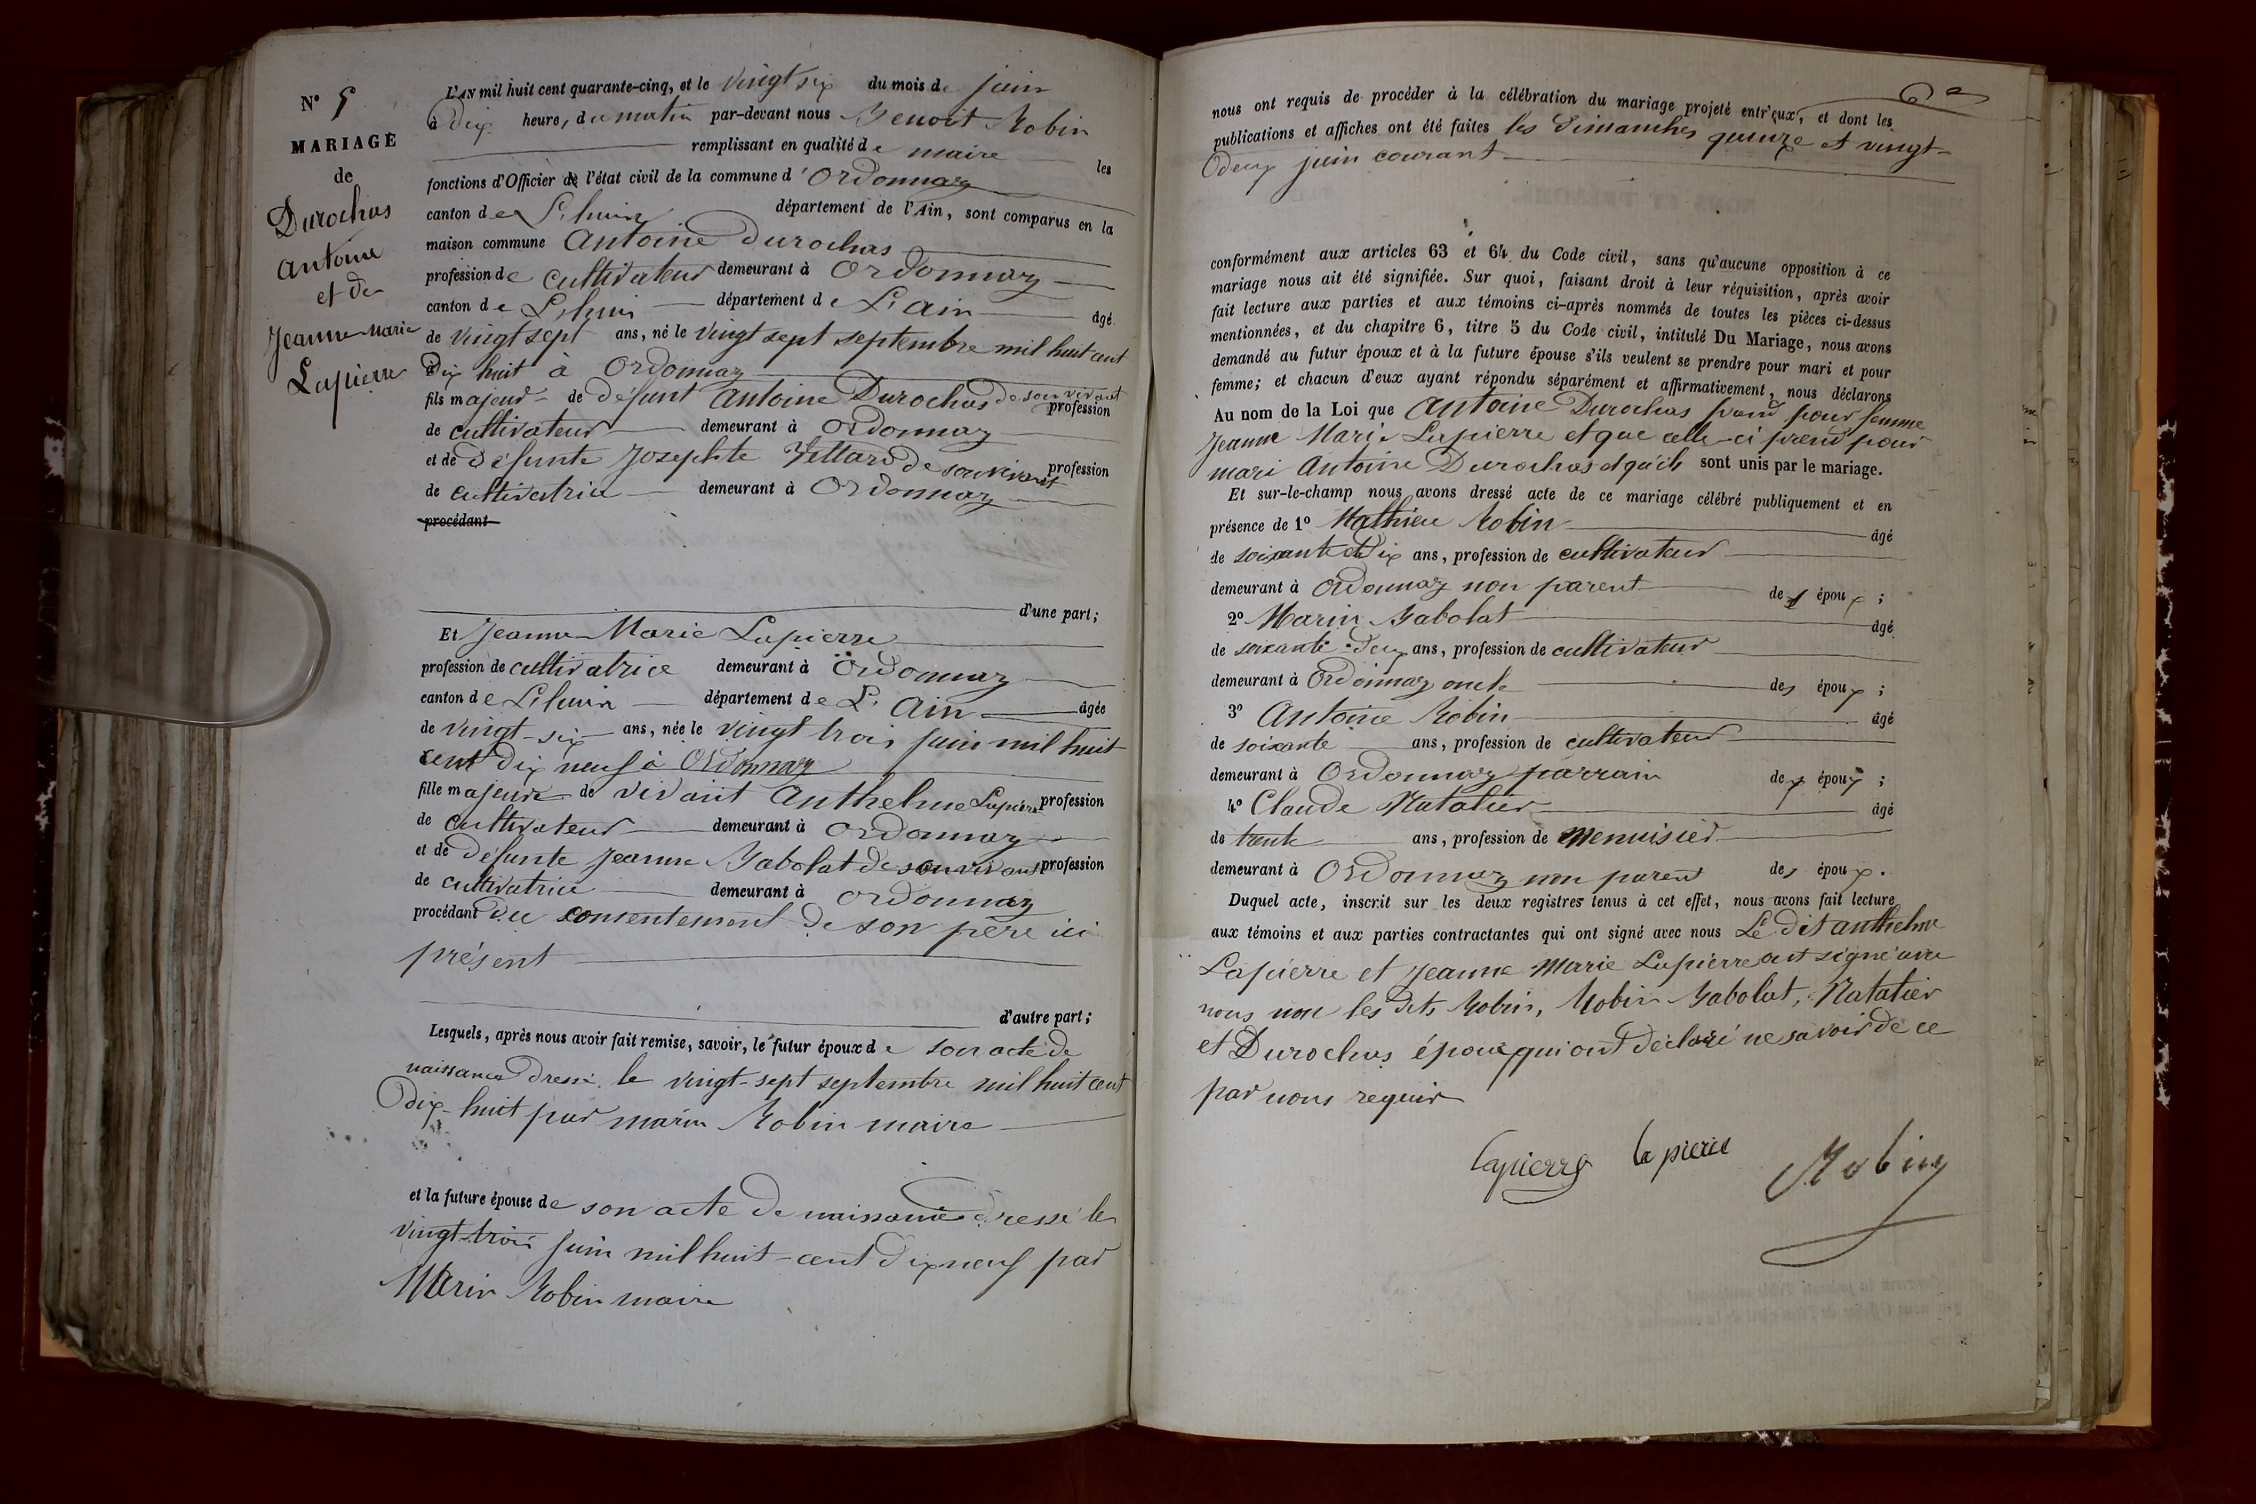 N° 5
MARIAGE
de
Durochas
Antoine
et de
Jeanne Marie
Lapierre
L'AN mil huit cent quarante-cinq, et le vingt six du mois de juin
à dix heure, du matin par-devant nous Benoit Robin
remplissant en qualité de maire les
fonctions d'Officier de l'état civil de la commune d'Ordonnaz
canton de L'huis département de l'Ain, sont comparus en la
maison commune Antoine Durochas
profession de cultivateur demeurant à Ordonnaz
canton de L'huis département de L'ain âgé
de vingt sept ans, né le vingt sept septembre mil huit cent
dix huit à Ordonnaz
fils majeur de défunt Antoine Durochas de son vivant profession
de cultivateur demeurant à Ordonnaz
et de défunte Josephte Vettard de son vivant profession
de cultivatrice demeurant à Ordonnaz
procédant
d'une part;
Et Jeanne Marie Lapierre
profession de cultivatrice demeurant à Ordonnaz
canton de L'huis département de L'Ain âgée
de vingt-six ans, née le vingt trois juin mil huit
cent dix neuf à Ordonnaz
fille majeure de vivant Anthelme Lapierre profession
de cultivateur demeurant à Ordonnaz
et de défunte Jeanne Babolat de son vivant profession
de cultivatrice demeurant à Ordonnaz
procédant du consentement de son père ici
présent
d'autre part;
Lesquels, après nous avoir fait remise, savoir, le futur époux de son acte de
naissance dressé le vingt-sept septembre mil huit cent
dix-huit par marin Robin maire
et la future épouse de son acte de naissance dressé le
vingt-trois juin mil huit-cent dix neuf par
Marin Robin maire
nous ont requis de procéder à la célébration du mariage projeté entr'eux, et dont les
publications et affiches ont été faites les dimanches quinze et vingt-
deux juin courant
conformément aux articles 63 et 64 du Code civil, sans qu'aucune opposition à ce
mariage nous ait été signifiée. Sur quoi, faisant droit à leur réquisition, après avoir
fait lecture aux parties et aux témoins ci-après nommés de toutes les pièces ci-dessus
mentionnées, et du chapitre 6, titre 5 du Code civil, intitulé Du Mariage, nous avons
demandé au futur époux et à la future épouse s'ils veulent se prendre pour mari et pour
femme; et chacun d'eux ayant répondu séparément et affirmativement, nous déclarons
Au nom de la Loi que Antoine Durochas prend pour femme
Jeanne Marie Lapierre et que celle-ci prend pour
mari Antoine Durochas et qu'ils sont unis par le mariage.
Et sur-le-champ nous avons dressé acte de ce mariage célébré publiquement et en
présence de 1° Mathieu Robin âgé
de soixante et dix ans, profession de cultivateur
demeurant à Ordonnaz non parent des époux;
2° Marin Babolat âgé
de soixante-deux ans, profession de cultivateur
demeurant à Ordonnaz oncle des époux;
3° Antoine Robin âgé
de soixante ans, profession de cultivateur
demeurant à Ordonnaz parrain des époux;
4° Claude Natalier âgé
de trente ans, profession de menuisier
demeurant à Ordonnaz non parent des époux.
Duquel acte, inscrit sur les deux registres tenus à cet effet, nous avons fait lecture
aux témoins et aux parties contractantes qui ont signé avec nous Le dit anthelme
Lapierre et Jeanne Marie Lapierre ont signé avec
nous non les dits Robin, Robin Babolat, Natalier
et Durochas époux qui ont déclaré ne savoir de ce
par nous requis
Lapierre la pierre Robin